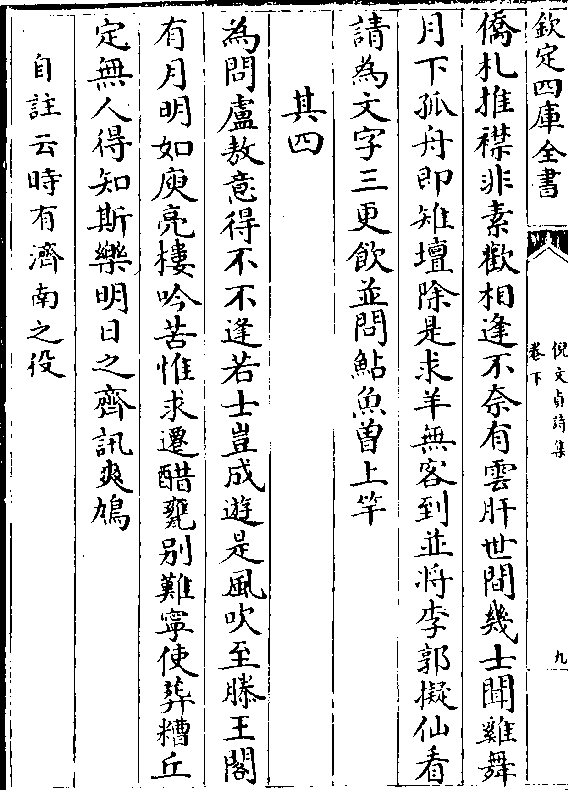 欽定四庫全書
倪文貞詩集
卷下
九
僑札推襟非素歡相逢不奈有雲肝世間幾士聞雞舞
月下孤舟即雉壇除是求羊無客到並將李郭擬仙看
請為文字三更飲並問鮎魚曽上竿
其四
為問盧敖意得不不逢若士豈成遊是風吹至滕王閣
有月明如庾亮樓吟苦惟求遷醋甕别難寧使葬糟丘
定無人得知斯樂明日之齊訊爽鳩
自註云時有濟南之役